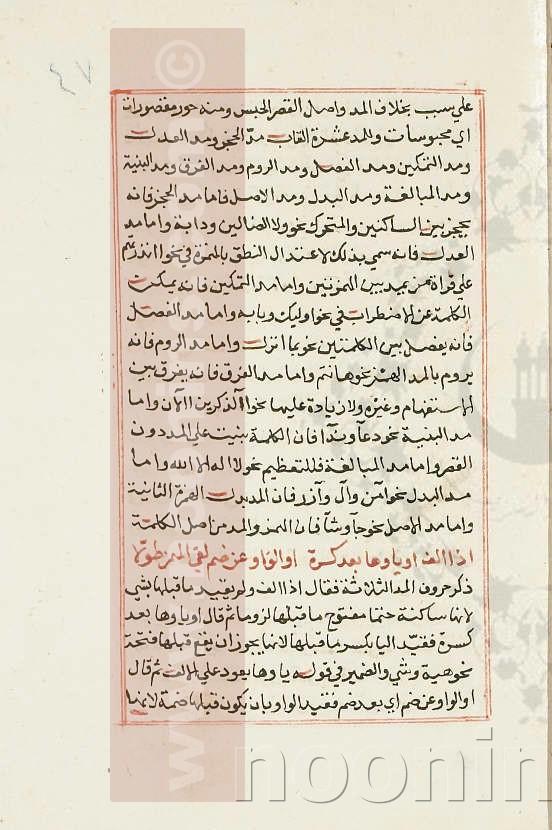 ٤٧
علي سبب بخلاف المد واصل القصر الحبس ومنه حور مقصورات
اي محبوسات وللمد عشرة القاب مد الحجز ومد العدل
ومد التمكين ومد الفصل ومد الروم ومد الفرق ومد البنية
ومد المبالغة ومد البدل ومد الاصل فاما مد الحجز فانه
يحجز بين الساكنين والمتحرك نحو ولا الضالين ودابة واما مد
العدل فانه سمي بذلك لاعتدال النطق بالهمزة في نحو اانذرتهم
علي قراة من يمد بين الهمزتين واما مد التمكين فانه يمكن
الكلمة عن الاضطراب في نحو اوليك وبابه واما مد الفصل
فانه يفصل بين الكلمتين نحو بما انزل واما مد الروم فانه
يروم بالمد الهمز نحو هانتم واما مد الفرق فانه يفرق بين
الاستفهام وغيره ولا زيادة عليها نحو آلذكرين الآن واما
مد البنية نحو دعآ وندآ فان الكلمة بنيت علي المد دون
القصر واما مد المبالغة فللتعظيم نحو لا اله الا الله واما
مد البدل نحو آمن وآل وآزر فان المد بدل الهمزة الثانية
واما مد الاصل نحو جآ وشآ فان الهمز والمد من اصل الكلمة
اذا الف او ياوها بعد كسرة او الواو عن ضم لقي الهمز طولا
ذكر حروف المد الثلاثة فقال اذا الف ولم يقيد ما قبلها بشي
لانها ساكنة حتما مفتوح ما قبلها لزوما ثم قال او ياوها بعد
كسرة فقيد اليا بكسر ما قبلها لانها يجوز ان يقع قبلها فتحة
نحو هية وشي والضمير في قوله ياوها يعود علي الالف ثم قال
او الواو عن ضم اي بعد ضم فقيد الواو بان يكون قبلها ضمة لانها
noonin